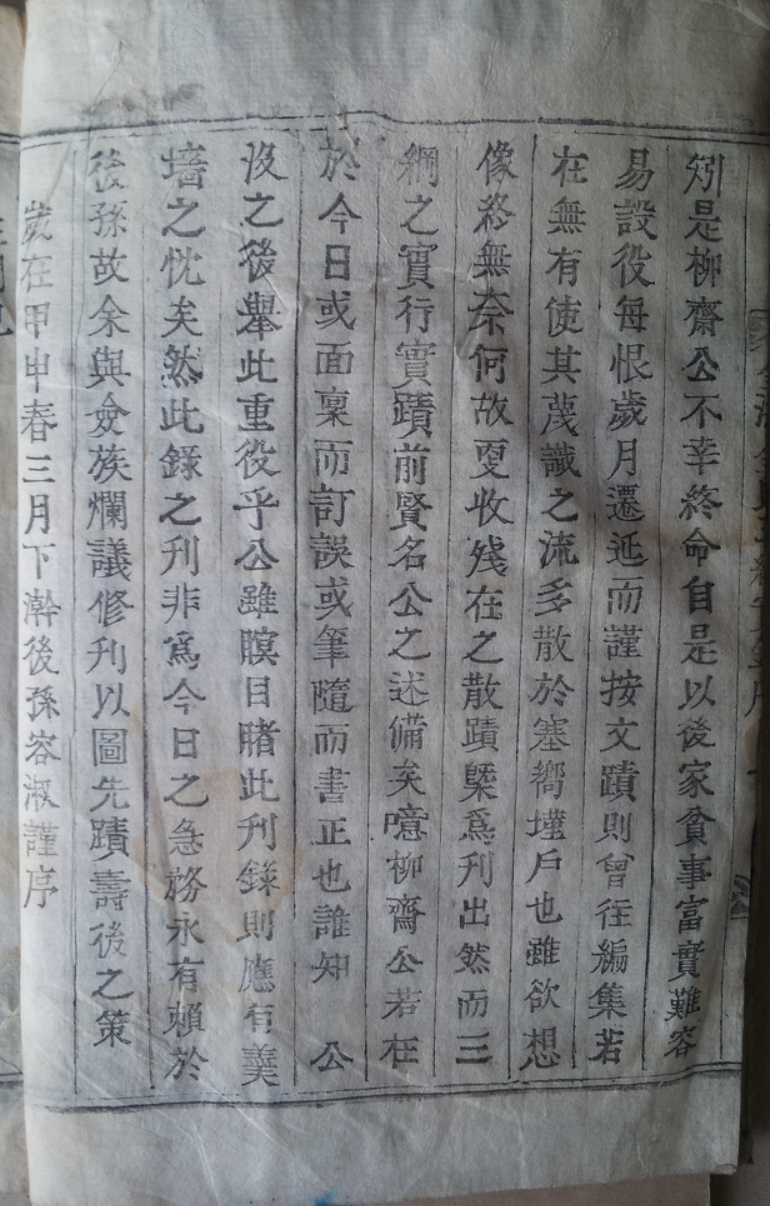 矧是柳齋公不幸終命自是以後家貧事富實難容
易設役每恨歲月遷延而謹按文蹟則曾徃編集若
在無有使其蔑識之流多散於塞嚮墐戶也雖欲想
像終無奈何故更收殘在之散蹟槩爲刊出然而三
綱之實行實蹟前賢名公之述備矣噫柳齋公若在
於今日或面稟而訂誤或筆隨而書正也誰知　公
沒之後舉此重役乎公雖瞑目睹此刊錄則應有羹
墻之忱矣然此錄之刊非爲今日之急務永有賴於
後孫故余與僉族爛議修刋以圖先蹟壽後之策
歲在甲申春三月下澣後孫容淑謹序